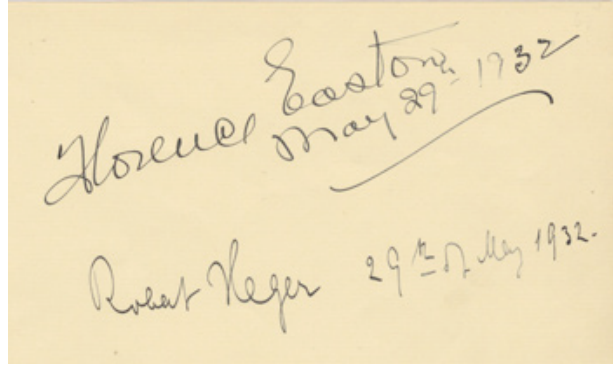 Florence Easton
May 29th 1932
Robert Heger 29th of May 1932.